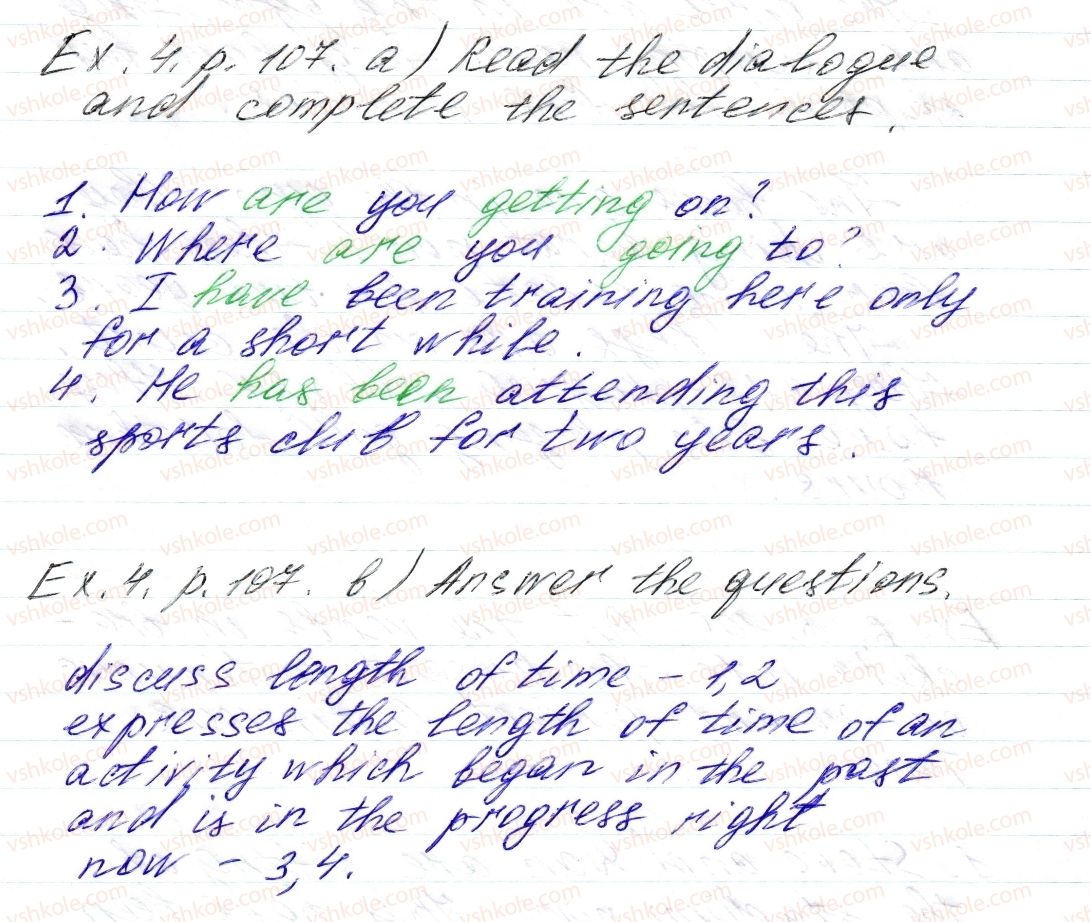 Ex. 4. p. 107. a) Read the dialogue
and complete the sentences.
1. How are you getting on?
2. Where are you going to?
3. I have been training here only
for a short while.
4. He has been attending this
sports club for two years.
Ex. 4. p. 107. b) Answer the questions.
discuss length of time - 1,2
expresses the length of time of an
activity which began in the past
and is in the progress right
now - 3,4.